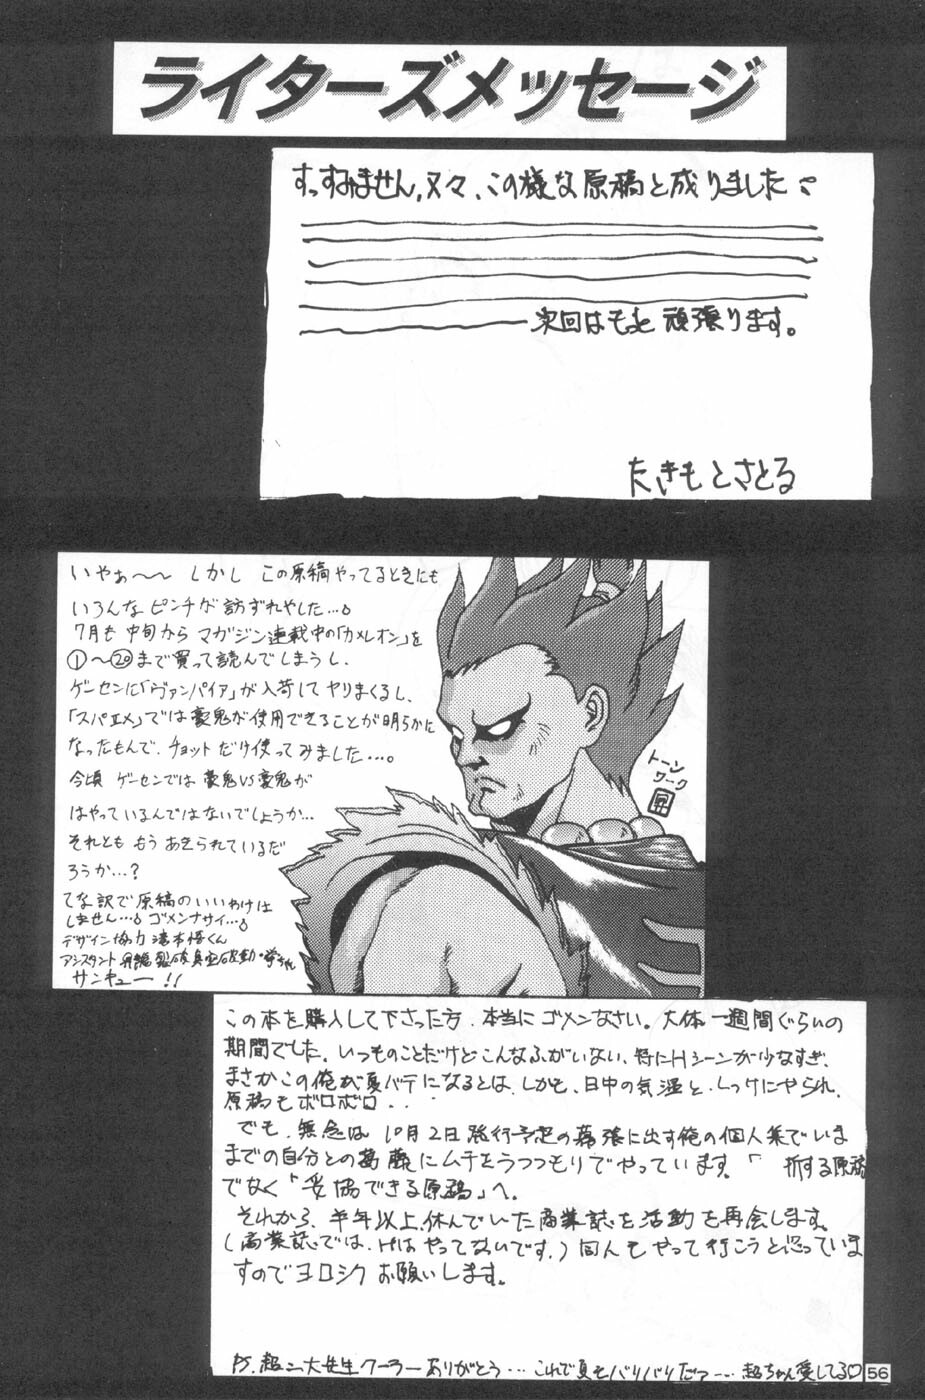 ライターズメッセージ
すっすみません、又々、この様な原稿と成りました
次回はもっと頑張ります。
たきもとさとる
いやぁ〜〜 しかし この原稿やってるときにも
いろんな ピンチが 訪ずれやした…。
7月も 中旬から マガジン連載中の「カメレオン」を
①〜⑳まで買って読んでしまうし、
ゲーセンに「ヴァンパイア」が入荷して ヤリまくるし、
「スパエメ」では豪鬼が使用できることが明らかに
なったもんで、チョットだけ使ってみました…。
今頃 ゲーセンでは 豪鬼VS豪鬼が
はやっているんではないでしょうか…
それとも もう あきられているだ
ろうか…?
てな訳で原稿のいいわけは
しません…。ゴメンナサイ…。
デザイン協力 滝本悟くん
アシスタント
サンキュー!!
トーン
ワーク
この本を購入して下さった方、本当にゴメンなさい。大体一週間ぐらいの
期間でした。いつものことだけどこんなふがいない、特にHシーンが少なすぎ、
まさかこの俺が夏バテになるとは、しかも、日中の気温と、しっけにやられ、
原稿もボロボロ・・
でも、無念は 10月2日発行予定の幕張に出す俺の個人集でいま
までの自分との葛藤にムチをうつつもりでやっています。「 折する原稿
でなく「妥協できる原稿」へ。
それから、半年以上、休んでいた商業誌を活動を再会します。
(商業誌では、Hはやってないです。)同人もやって行こうと思っていま
すのでヨロシクお願いします。
P.S. 超二大先生クーラーありがとう… これで夏もバリバリだっ…. 超ちゃん愛してる♡
56